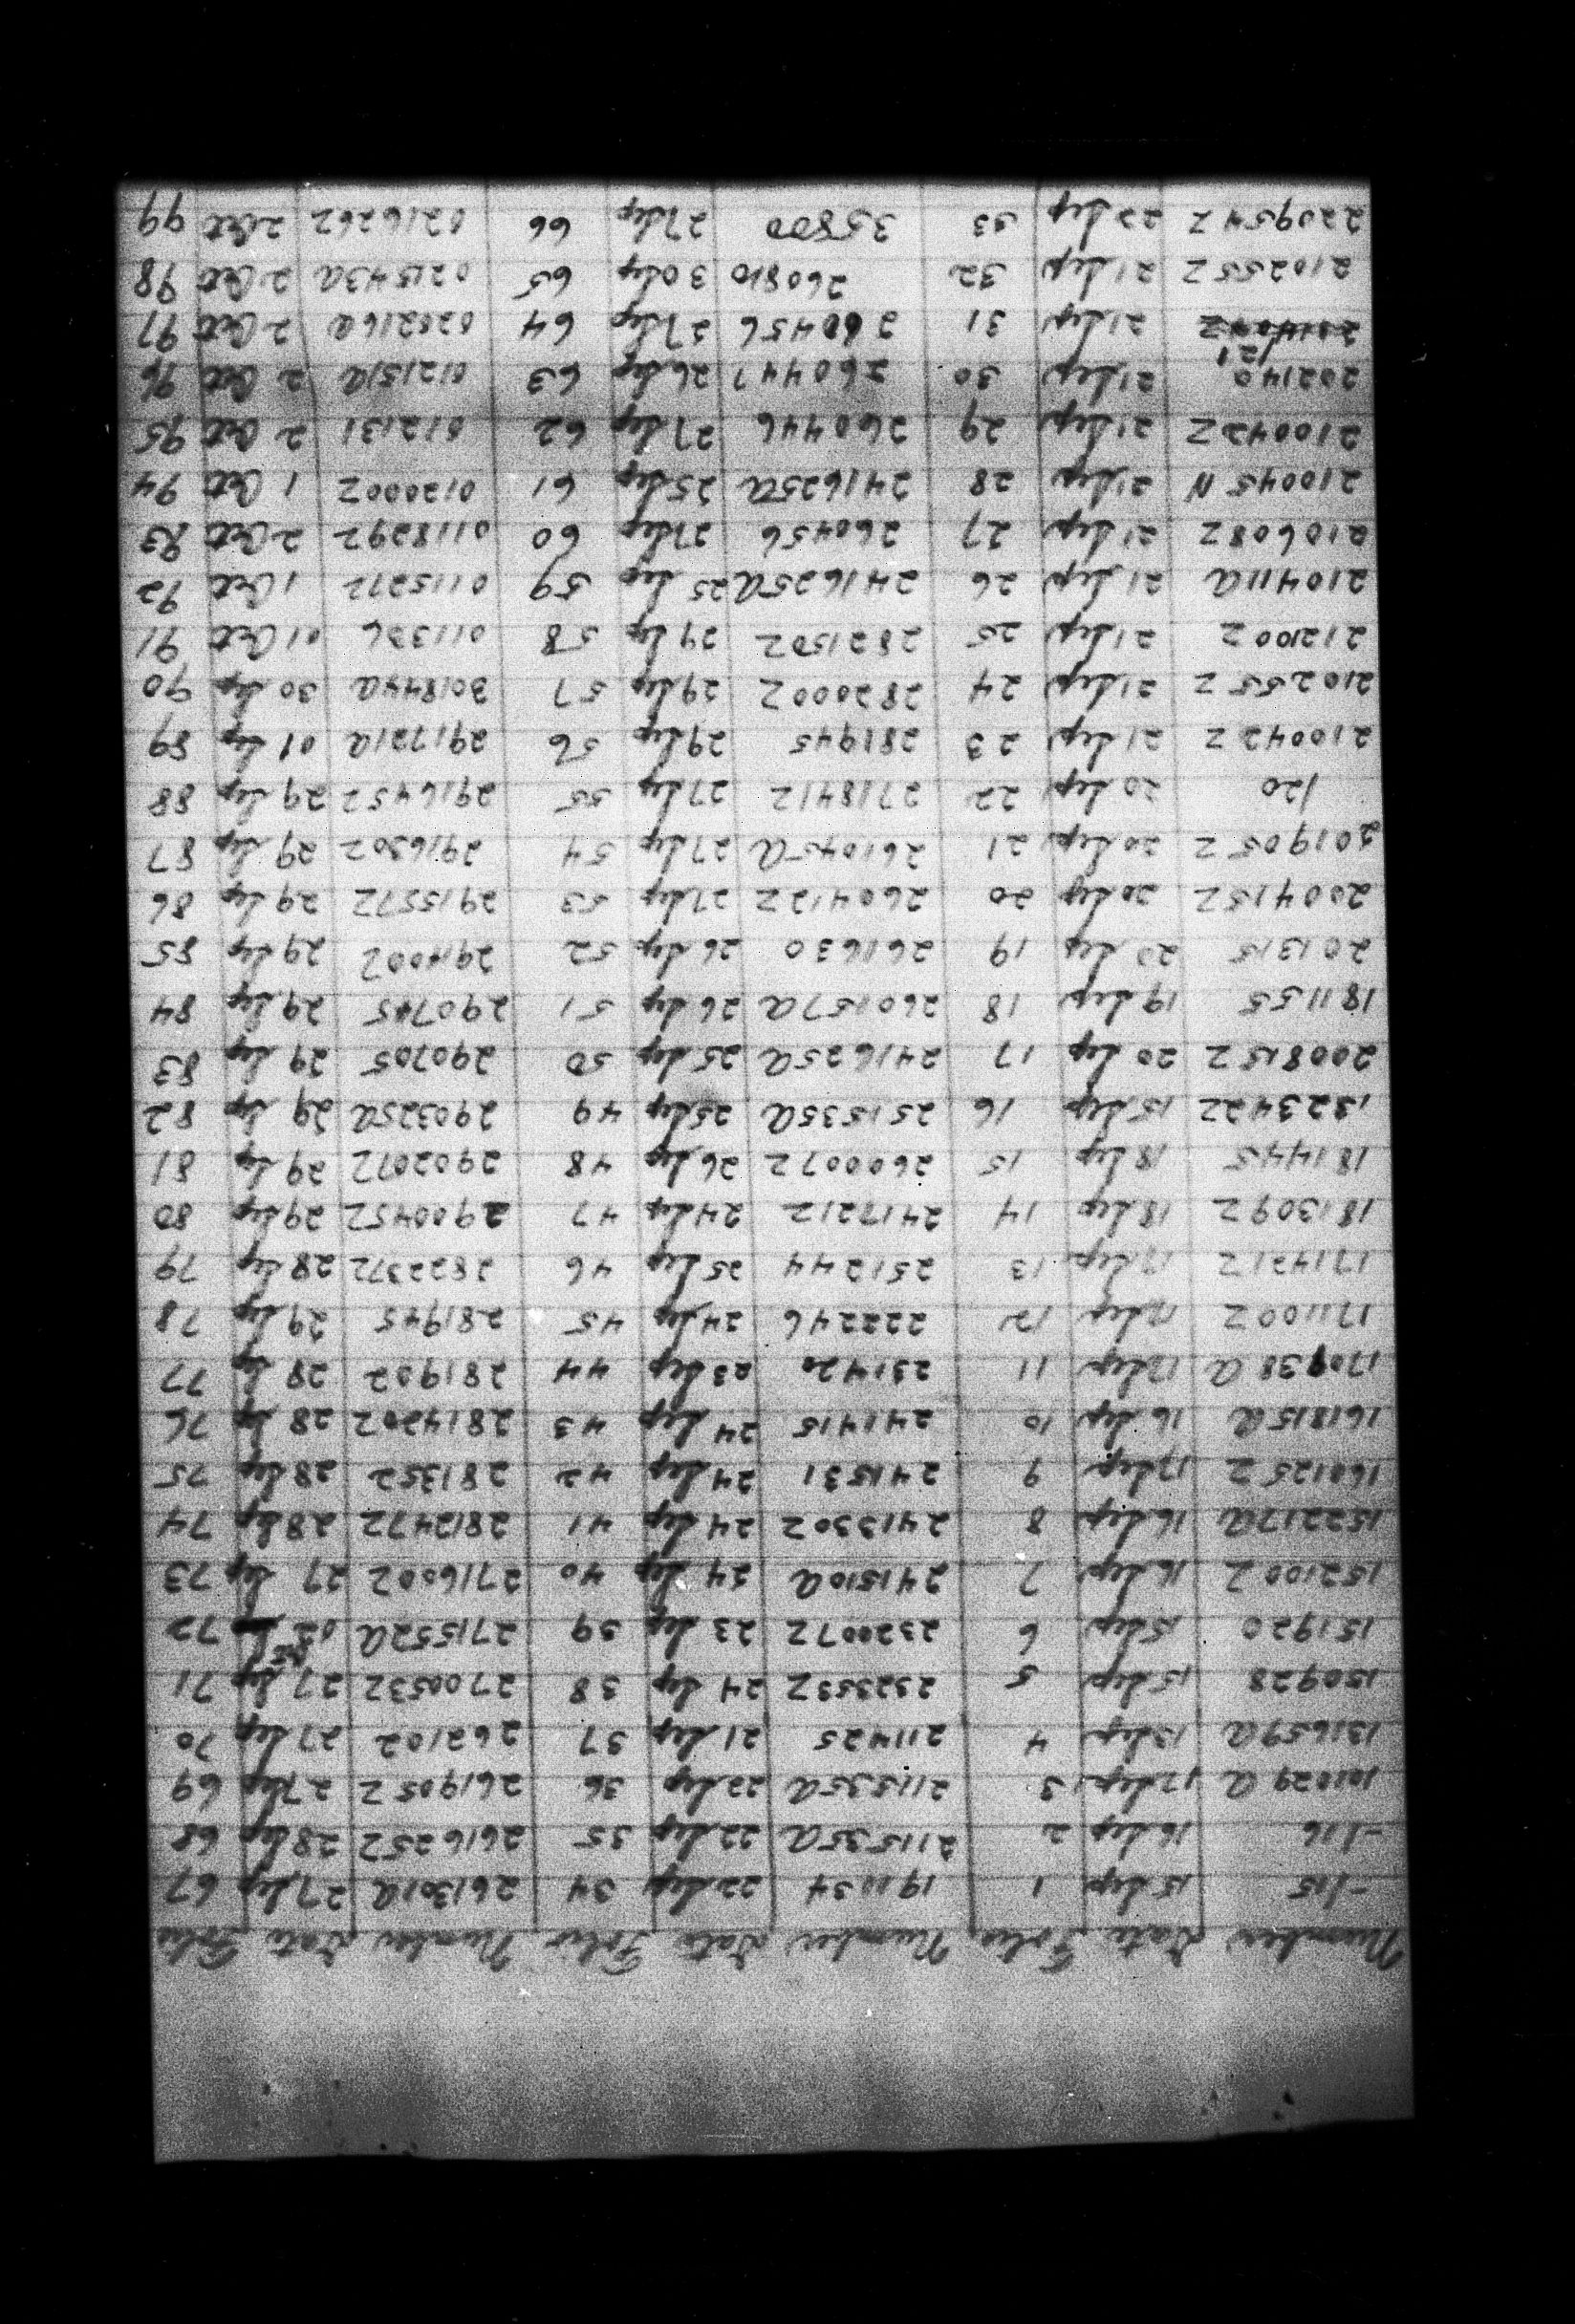 Number Date Folio Number Date Folio Number Date Folio
-/15 15 Sep 1 191134 22 Sep 34 261301A 27 Sep 67
-/16 16 Sep 2 211535A 22 Sep 35 261625Z 28 Sep 68
101029A 17 Sep 3 211535A 22 Sep 36 261905Z 27 Sep 69
131659A 13 Sep 4 211425 21 Sep 37 26210Z 27 Sep 70
150928 15 Sep 5 232353Z 24 Sep 38 270053Z 27 Sep 71
151920 15 Sep 6 232007Z 23 Sep 39 271552A 02 Oct 72
152100Z 16 Sep 7 241510A 24 Sep 40 271600Z 27 Sep 73
152217A 16 Sep 8 241330Z 24 Sep 41 281247Z 28 Sep 74
160125Z 17 Sep 9 241531 24 Sep 42 281352 28 Sep 75
161815A 16 Sep 10 241415 24 Sep 43 281420Z 28 Sep 76
170938A 17 Sep 11 231420 23 Sep 44 281902 28 Sep 77
171100Z 17 Sep 12 222246 24 Sep 45 281945 29 Sep 78
171421Z 17 Sep 13 251244 25 Sep 46 282237Z 28 Sep 79
181309Z 18 Sep 14 241721Z 24 Sep 47 290045Z 29 Sep 80
181445 18 Sep 15 260007Z 26 Sep 48 290207Z 29 Sep 81
132342Z 15 Sep 16 251535A 25 Sep 49 290325A 29 Sep 82
200815Z 20 Sep 17 241625A 25 Sep 50 290705 29 Sep 83
181155 19 Sep 18 260157A 26 Sep 51 290745 29 Sep 84
201315 20 Sep 19 261630 26 Sep 52 291100Z 29 Sep 85
200415Z 20 Sep 20 260412Z 27 Sep 53 291557Z 29 Sep 86
201905Z 20 Sep 21 261045A 27 Sep 54 291630Z 29 Sep 87
/20 20 Sep 22 271841Z 27 Sep 55 291645Z 29 Sep 88
210042Z 21 Sep 23 281945 29 Sep 56 291721A 01 Sep 89
210255Z 21 Sep 24 282000Z 29 Sep 57 301844A 30 Sep 90
212100Z 21 Sep 25 282150Z 29 Sep 58 011336 01 Oct 91
210411A 21 Sep 26 241625A 25 Sep 59 011527Z 1 Oct 92
210608Z 21 Sep 27 260456 27 Sep 60 011829Z 2 Oct 93
210045N 21 Sep 28 241625A 25 Sep 61 012000Z 1 Oct 94
210042Z 21 Sep 29 260446 27 Sep 62 012131 2 Oct 95
202140 21 Sep 30 260447 26 Sep 63 012151A 2 Oct 96
/21 21 Sep 31 260456 27 Sep 64 020216A 2 Oct 97
210255Z 21 Sep 32 260810 30 Sep 65 021543A 2 Oct 98
220954Z 22 Sep 33 35800 27 Sep 66 021626Z 2 Oct 99